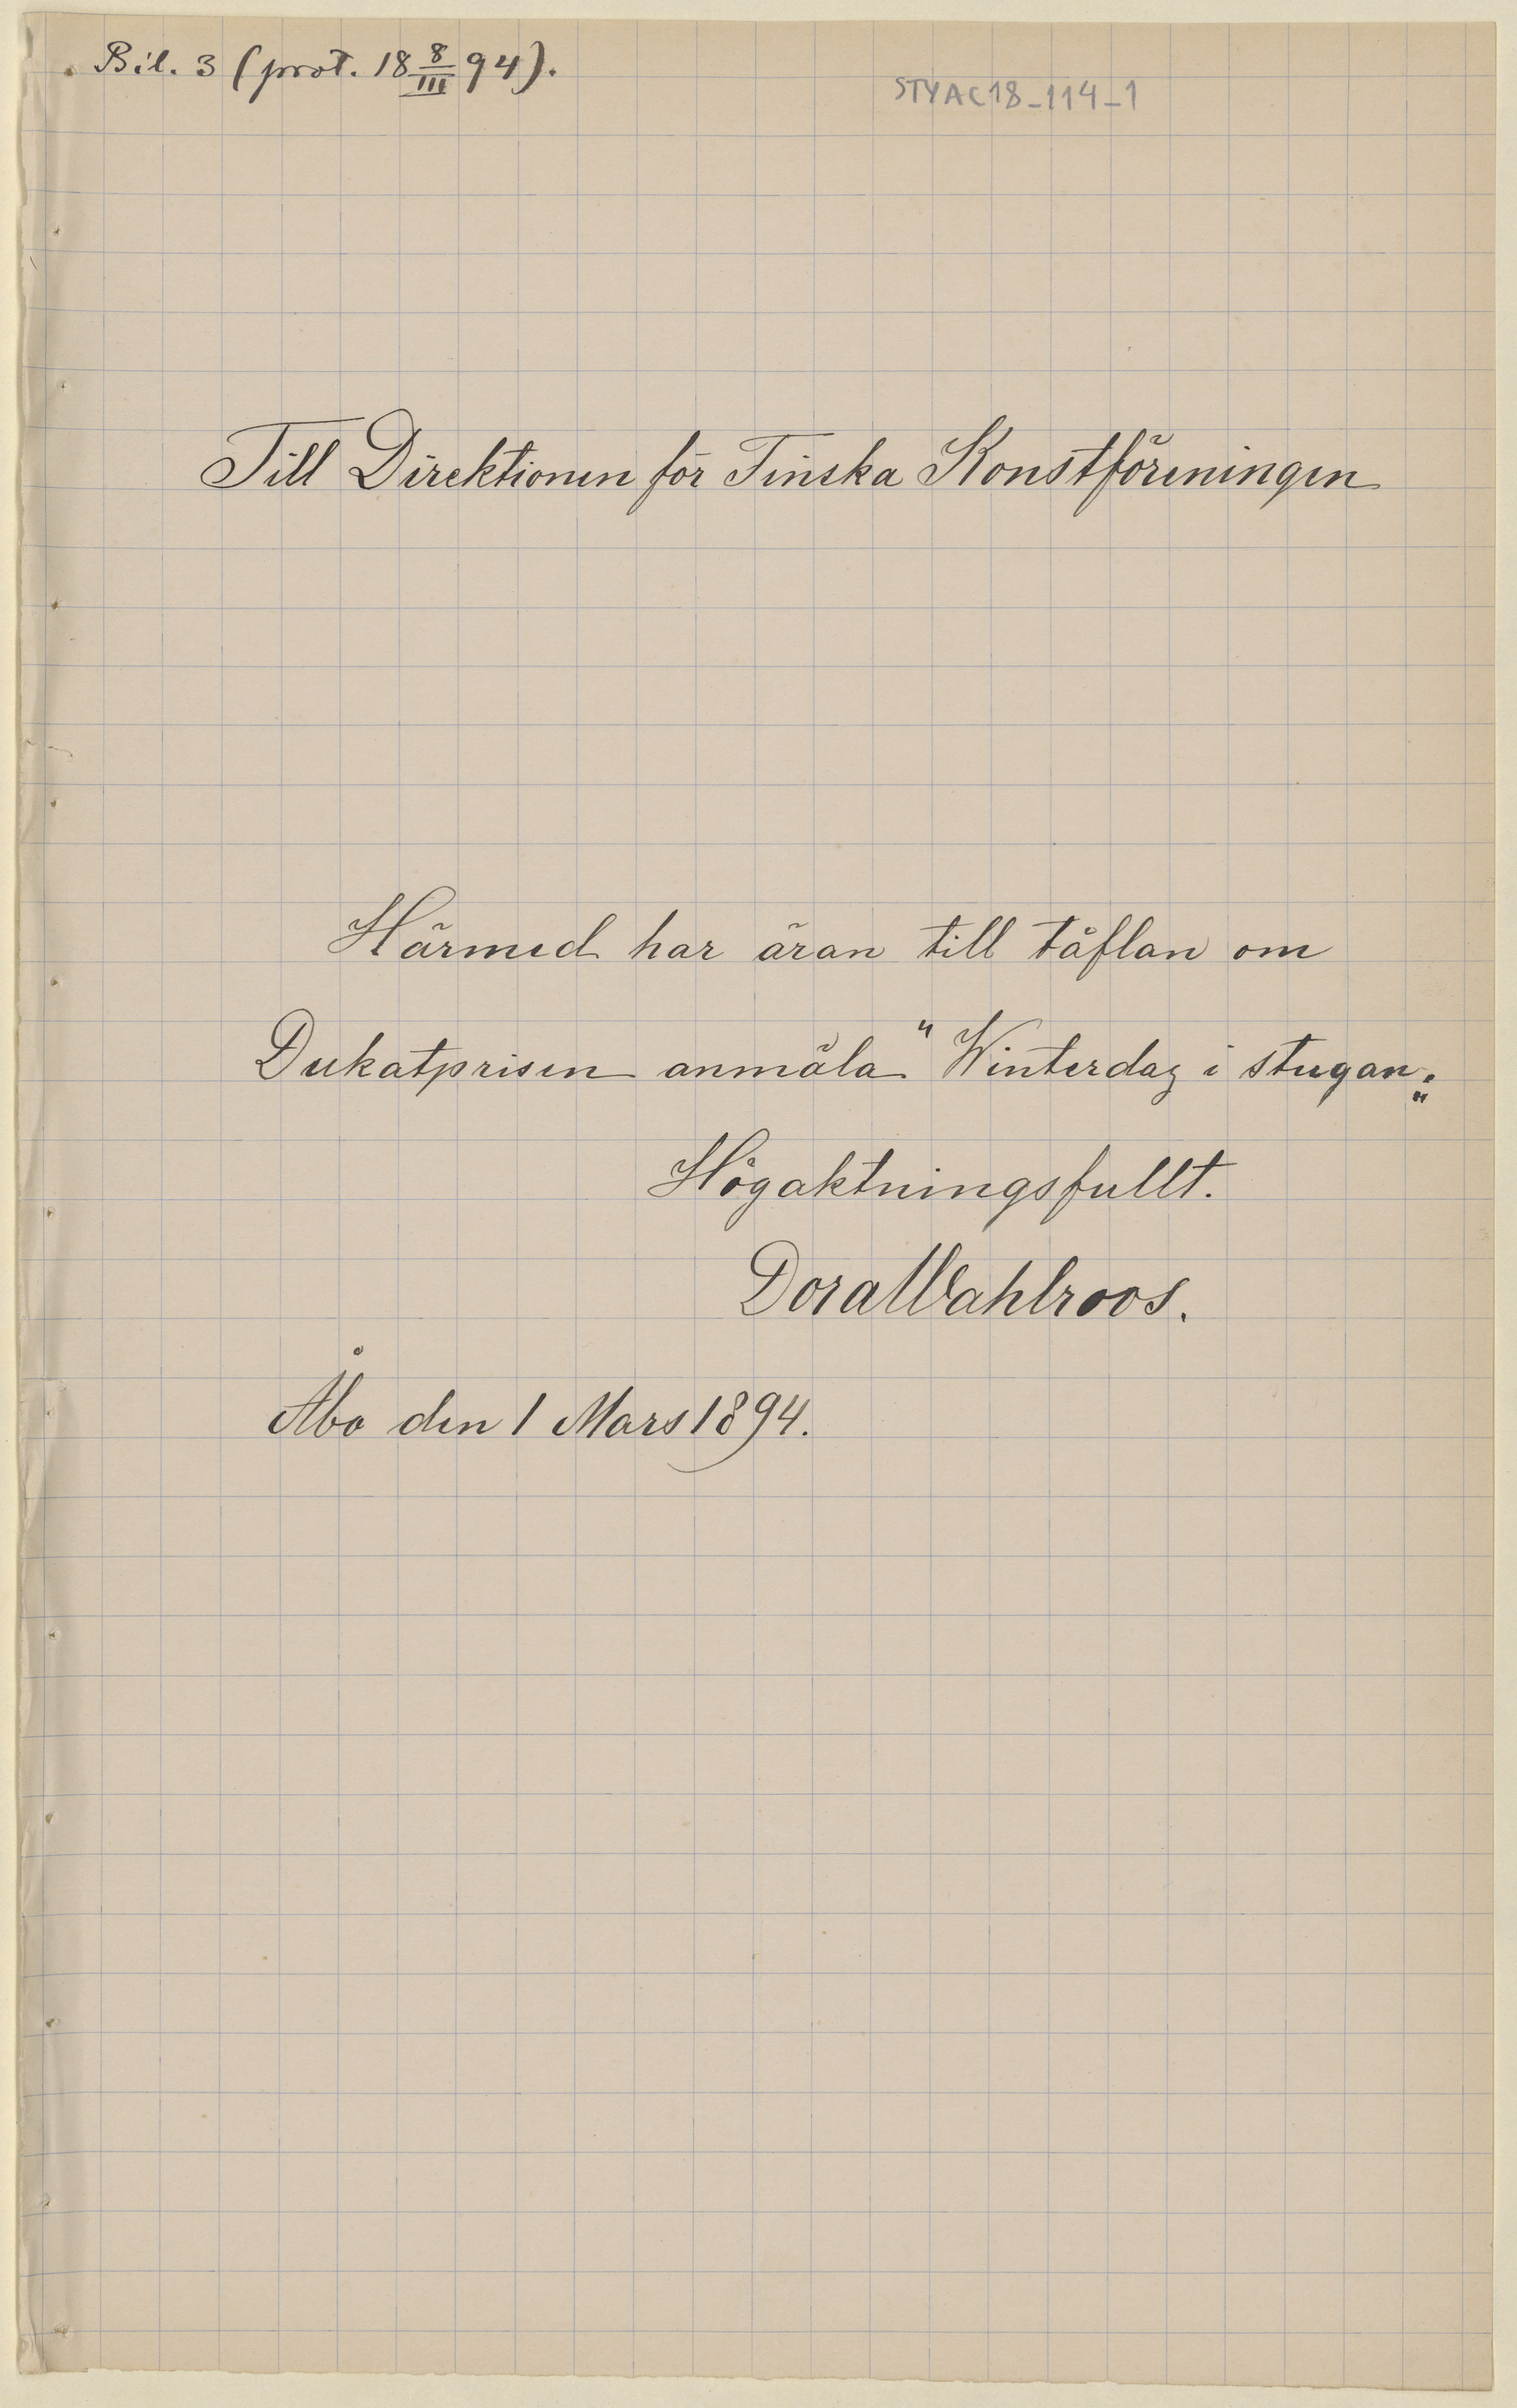 Bil. 3 (prot. 18 8/III 94).
STYAC18-114-1
Till Direktionen för Finska Konstföreningen
Härmed har äran till täflan om
Dukatprisen anmäla "Winterdag i stugan".
Högaktningsfullt.
Dora Wahlroos.
Åbo den 1 Mars 1894.